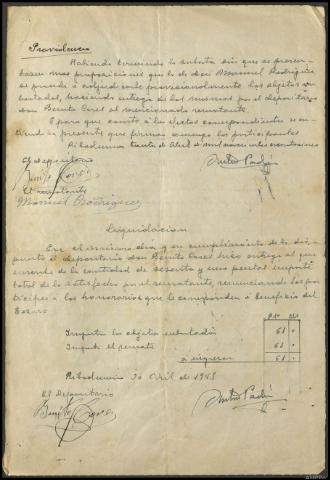 Providencia
Habiendo terminado la subasta sin que se presen-
tasen mas proposiciones que la de don Manuel Rodríguez
se procede a adjudicarle provisionalmente los objetos su-
bastados, haciendo entrega de los mismos por el depositario
don Benito Corel al mencionado rematante.
Y para que conste a los efectos correspondientes se en-
tiende la presente que firman conmigo los participantes
Ribadumia treinta de Abril de mil novecientos
El depositario
El rematante
Manuel Rodriguez
Liquidacion
En el mismo dia y en cumplimiento de lo dis-
puesto el depositario don Benito Corel hizo entrega al que
suscribe de la cantidad de sesenta y una pesetas importe
total de lo satisfecho por el rematante, renunciando los par-
tícipes a los honorarios que le correspondian a beneficio del
Tesoro
Importan los objetos subastados 61
Importe del remate 61
a ingresar 61
Ribadumia 30 Abril de 1943
El Depositario